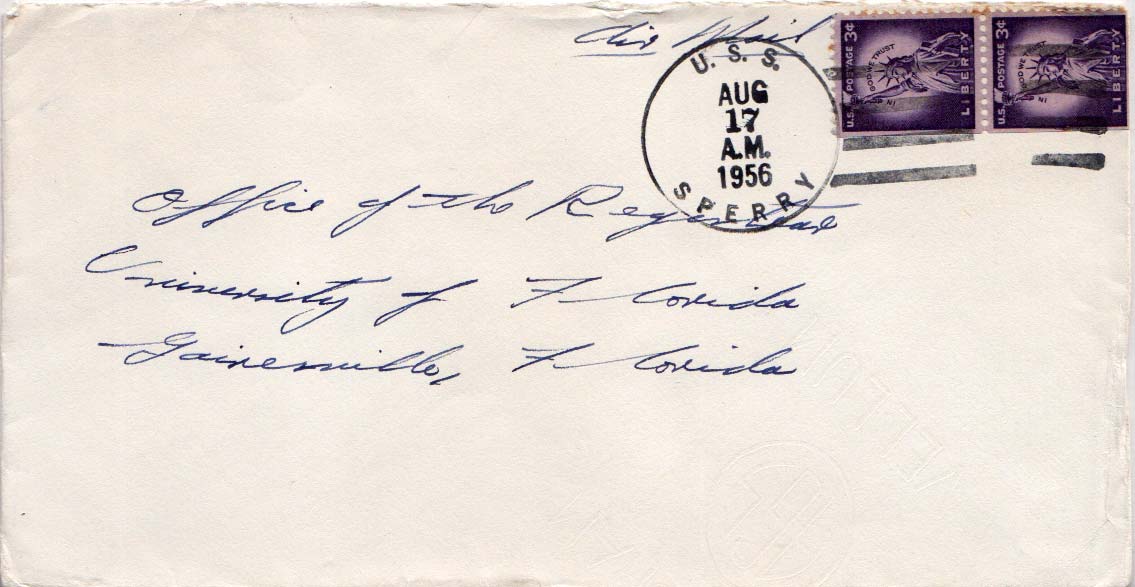 Air Mail
U. S. S.
AUG
17
A.M.
1956
SPERRY
U.S. POSTAGE 3¢
IN GOD WE TRUST
LIBERTY
U.S. POSTAGE 3¢
IN GOD WE TRUST
LIBERTY
Office of the Registrar
University of Florida
Gainesville, Florida